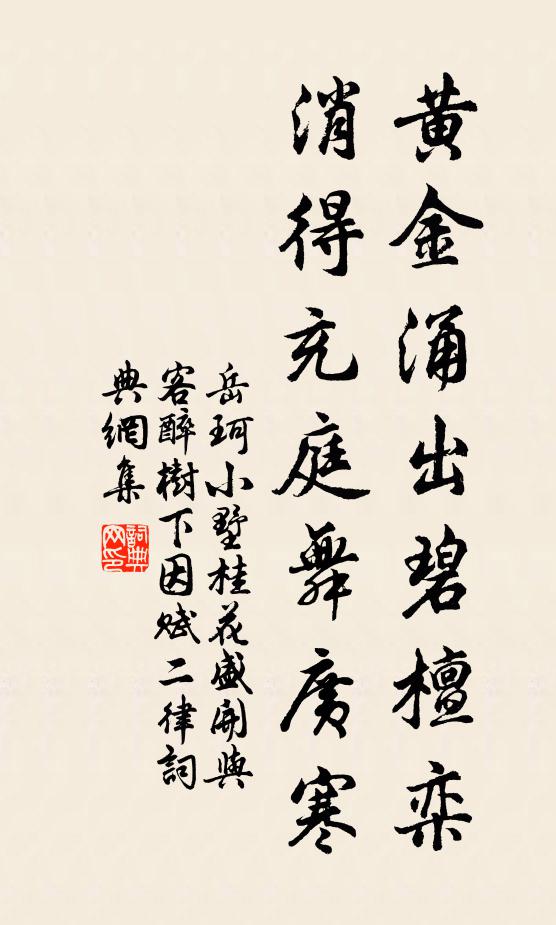 黄金涌出碧檀栾
消得充庭舞廣寒
岳珂小墅桂花盛開與
客醉樹下因賦二律詞
典網集
詞典
网印